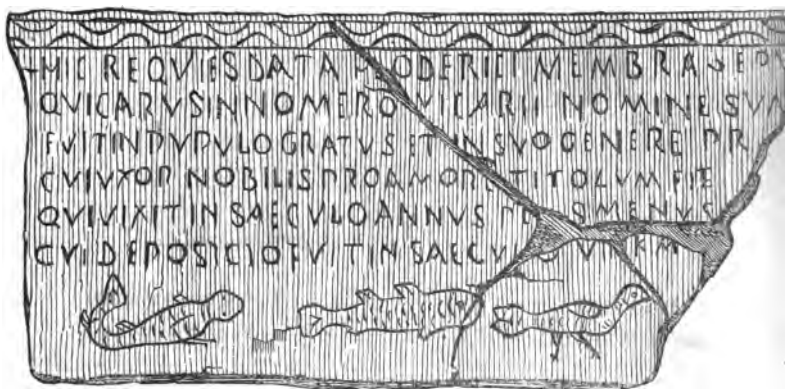 HIC REQVIES DATA HLODERICI MEMBRA SEPV
QVICARVSINNOMERO VICARII NOMINE SVM
FVITINPVPVLOGRATVS ET IN SVO GENERE PR
CVIVXOR NOBILIS PROAMORE TITOLVM FIE
QVIVIXITIN SAECVLOANNVS MENVS
CVIDEPOSICIOFVITINSAECV